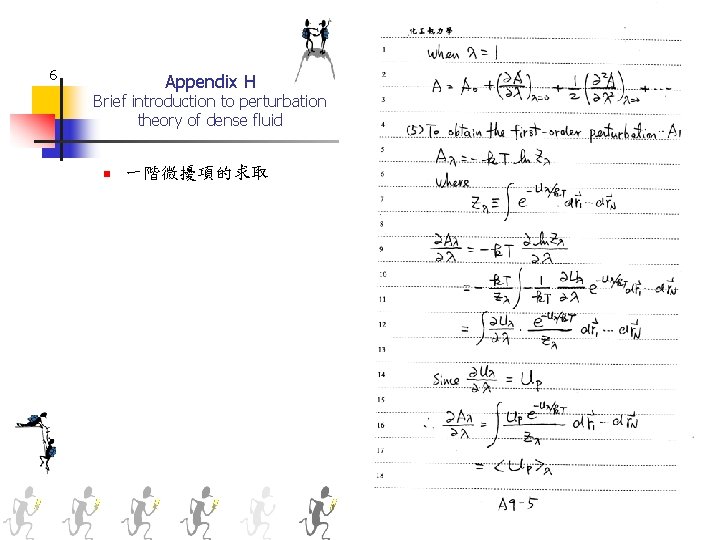 6
Appendix H
Brief introduction to perturbation
theory of dense fluid
一階微擾項的求取
化工熱力學
1 when λ = 1
2 A = A₀ + (∂A/∂λ)_{λ=0} + 1/2 (∂²A/∂λ²)_{λ=0} + ⋯
3
4 (5) To obtain the first-order perturbation A₁
5 A_λ = -kT ln Z_λ
6 where
7 Z_λ ≡ ∫ e^{-U_λ/kT} dr⃗₁ ⋯ dr⃗_N
8
9 ∂A_λ/∂λ = -kT ∂lnZ_λ/∂λ
10
11 = - kT/Z_λ ∫ - 1/kT · ∂U_λ/∂λ e^{-U_λ/kT} dr⃗₁ ⋯ dr⃗_N
12 = ∫ ∂U_λ/∂λ · e^{-U_λ/kT}/Z_λ dr⃗₁ ⋯ dr⃗_N
13
14 Since ∂U_λ/∂λ = U_p
15
16 ∴ ∂A_λ/∂λ = ∫ U_p e^{-U_λ/kT}/Z_λ dr⃗₁ ⋯ dr⃗_N
17
18 = <U_p>_λ
A9-5